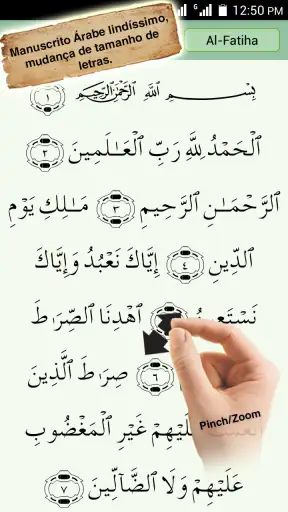 12:50 PM
Manuscrito Árabe lindíssimo,
mudança de tamanho de
letras.
Al-Fatiha
بِسْمِ ٱللَّهِ ٱلرَّحْمَٰنِ ٱلرَّحِيمِ ١
ٱلْحَمْدُ لِلَّهِ رَبِّ ٱلْعَـٰلَمِينَ ٢
ٱلرَّحْمَـٰنِ ٱلرَّحِيمِ ٣ مَـٰلِكِ يَوْمِ
ٱلدِّينِ ٤ إِيَّاكَ نَعْبُدُ وَإِيَّاكَ
ٱهْدِنَا ٱلصِّرَٰطَ
٦ صِرَٰطَ ٱلَّذِينَ
عَلَيْهِمْ غَيْرِ ٱلْمَغْضُوبِ
عَلَيْهِمْ وَلَا ٱلضَّآلِّينَ ٧
Pinch/Zoom